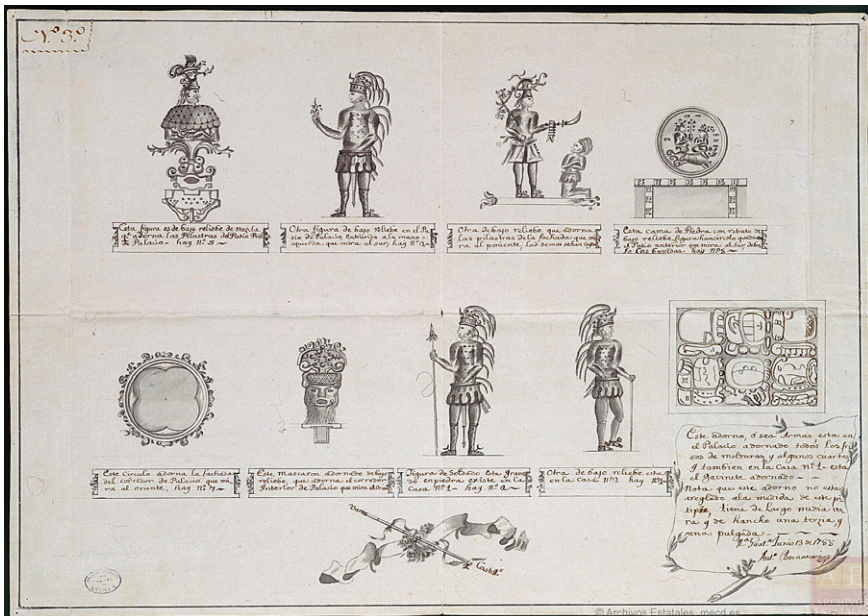 N.º 3.º
Esta figura es de bajo reliebe de mezcla
q.e adorna las Pilastras del Patio
de Palacio - hay n.º 3 -
Otra figura de bajo reliebe en el Pa
tio de Palacio entrando a la mano is
quierda que mira al sur, hay n.º 2 -
Otra de bajo reliebe que adorna
las pilastras de la fachada que mi
ra al poniente, las demas
Esta cama de Piedra con retrato de
bajo reliebe
el Patio anterior que mira al Sur deba
jo las Bovedas. hay n.º 5 -
Este Circulo adorna la fachada
del corredor de Palacio que mi
ra al oriente, hay n.º 7 -
Este Mascaron adornado de bajo
reliebe, que adorna el corredor
Interior de Palacio que mira
Figura de Soldado Esta grava
do en piedra existe en la
Casa n.º 1 - hay n.º 2 -
Otra de bajo reliebe esta
en la Casa n.º 2 hay n.º
Este adorno, ó sea Armas esta en
el Palacio adornado todos los fri
sos de molduras y algunos cuartos
y tambien en la Casa n.º 1 - esta
el Gavinete adornado -
Nota que este adorno no esta
areglado ala medida de este pi
tipie, tiene de largo media va
ra y de hancho una tercia y
una pulgada -
N.a Guat.a Junio 13 de 1785
Ant.o Bernasconi
Varas
© Archivos Estatales, mecd.es